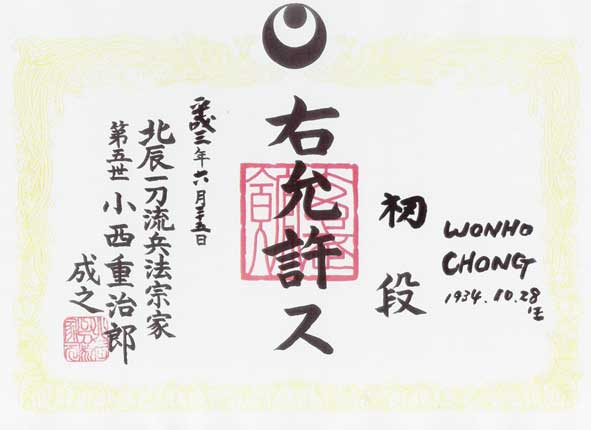 WONHO
CHONG
1934.10.28
生
初段
右允許ス
平成三年六月二十五日
北辰一刀流兵法宗家
第五世 小西重治郎
成之